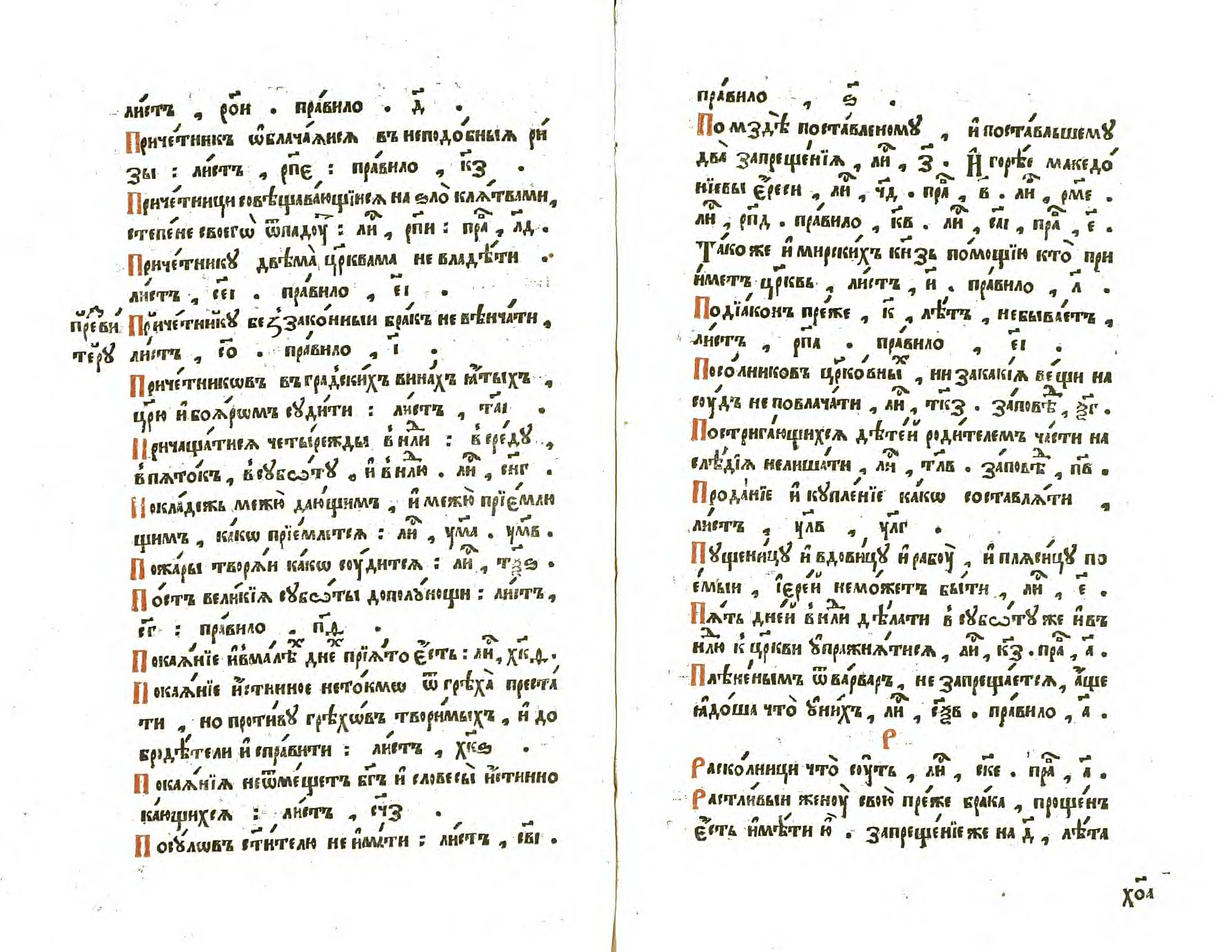 ли́стъ , ро҃и . пра́вило . д҃ .
Приче́тникъ ѡ҆блача́ѧисѧ въ неподо́бныѧ ри́
зы : ли́стъ , рп҃є : пра́вило , к҃з .
Приче́тници совѣщава́ющїисѧ на ѕло̀ клѧ́твами,
степене своегѡ̀ ѿпадоу́ : лиⷭ҇ , рп҃и : праⷡ҇ , л҃д .
Приче́тнику двѣма̀ цр҃квама не владѣ́ти .
ли́стъ , се҃і . пра́вило , є҃і .
Приче́тнику беззако́нныи бра́къ не вѣнча́ти ,
ли́стъ , со҃ . пра́вило , і҃ .
Приче́тникѡвъ въ гра́дскихъ вина́хъ ꙗ҆́тыхъ ,
цр҃ю и҆ боѧ́рѡмъ суди́ти : ли́стъ , та҃і .
Причаща́тисѧ четы́режды в нлⷣи : в сре́ду ,
в пѧто́къ , в субѡ́ту , и҆ в нлⷣю . лиⷭ҇ , сн҃г .
Покла́дежь межю̀ даю́щимъ , и҆ межю̀ прїє́млю
щимъ , ка́кѡ прїе́млетсѧ : лиⷭ҇ , ум҃а . ум҃в .
Пожа́ры творѧ́и ка́кѡ соу́дитсѧ : лиⷭ҇ , тѯ҃ѕ .
По́стъ вели́кїѧ субѡ́ты до полу́нощи : ли́стъ ,
с҃г : пра́вило , п҃д .
Покаѧ́нїе и҆ в малѣⷯ дне́ⷯ прїѧ́то є҆́сть : лиⷭ҇ , хк҃д .
Покаѧ́нїе и҆́стинное не то́кмѡ ѿ грѣха̀ преста́
ти , но проти́ву грѣхѡ́въ твори́мыхъ , и҆ до
бродѣ́тели и҆справи́ти : ли́стъ , хк҃ѕ .
Покаѧ́нїѧ не ѿме́щетъ бг҃ъ и҆ словесы̀ и҆́стинно
ка́ющихсѧ : ли́стъ , сч҃з .
Посу́лѡвъ ст҃и́телю не и҆ма́ти : ли́стъ , св҃і .
пре́зви
теру
пра́вило , ѕ҃ .
По мздѣ̀ поста́вленому , и҆ поста́вльшему
два̀ запреще́нїѧ , лиⷭ҇ , з҃ . И҆ го́рѣе македо́
нїевы є҆́реси , лиⷭ҇ , ч҃д . праⷡ҇ , в҃ . лиⷭ҇ , рм҃е .
лиⷭ҇ , рп҃д . пра́вило , к҃в . лиⷭ҇ , са҃і , праⷡ҇ , є҃ .
Та́коже и҆ мирски́хъ кн҃зь по́мощїю кто̀ при
и́метъ цр҃квь , ли́стъ , и҃ . пра́вило , л҃ .
Подїа́конъ пре́же , к҃ , лѣ́тъ , не быва́етъ ,
ли́стъ , рп҃а . пра́вило , є҃і .
Посо́лниковъ цр҃ко́вныⷯ , ни за ка́кїѧ ве́щи на
соу́дъ не повлача́ти , лиⷭ҇ , тк҃з . за́повѣⷣ , ѯ҃г .
Постриза́ющихсѧ дѣте́й роди́телемъ ча́сти на
слѣ́дїѧ не лиша́ти , лиⷭ҇ , тл҃в . за́повѣⷣ , п҃в .
Прода́нїе и҆ купле́нїе ка́кѡ составлѧ́ти ,
ли́стъ , ул҃в , ул҃г .
Пуще́ницу и҆ вдови́цу и҆ рабоу̀ , и҆ плѧси́цу по
е́мыи , і҆ере́й не мо́жетъ бы́ти , лиⷭ҇ , є҃ .
Пѧ́ть дне́й в нлⷣи дѣ́лати в субѡ́ту же и҆ въ
нлⷣю к цр҃кви у҆пражнѧ́тисѧ , лиⷭ҇ , к҃з . праⷡ҇ , а҃ .
Плѣне́нымъ ѿ ва́рваръ , не запреща́етсѧ , а҆́ще
ꙗ҆до́ша что̀ у҆ ни́хъ , лиⷭ҇ , сѯ҃в . пра́вило , а҃ .
Р
Раско́лници что̀ соу́ть , лиⷭ҇ , ск҃е . праⷡ҇ , а҃ .
Растли́выи женоу̀ свою̀ пре́же бра́ка , проще́нъ
є҆́сть и҆мѣ́ти ю҆̀ . запреще́нїе же на д҃ , лѣ́та
хо҃а